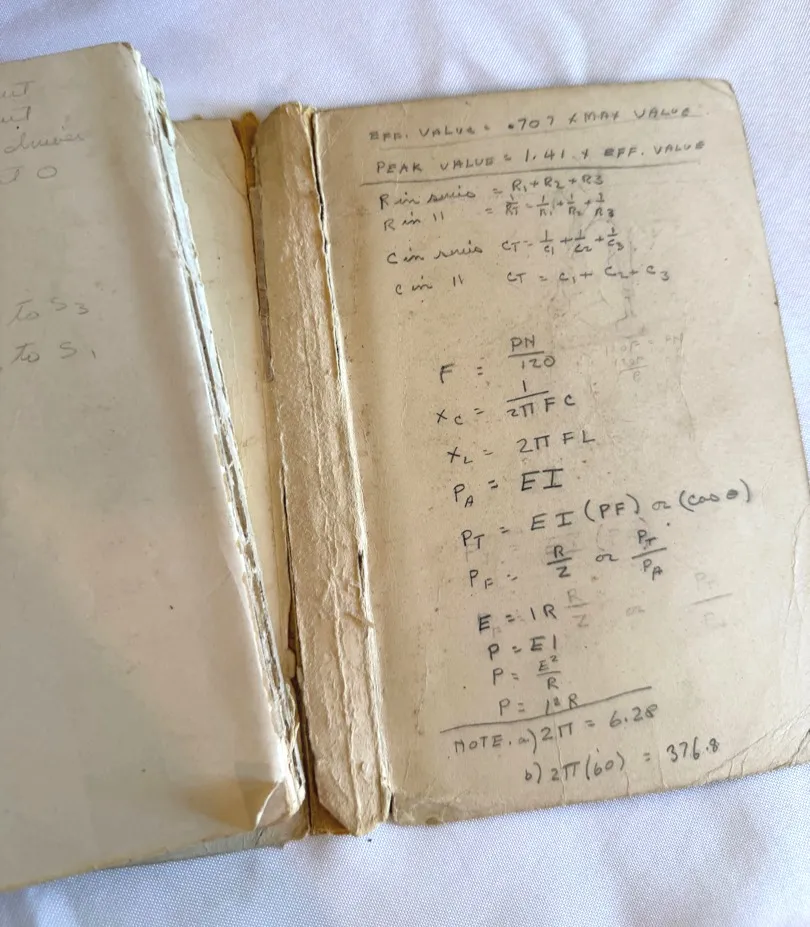 to S3
to S1
EFF. VALUE = .707 X MAX VALUE
PEAK VALUE = 1.41 X EFF. VALUE
R in series = R1 + R2 + R3
R in 11 = 1/RT = 1/R1 + 1/R2 + 1/R3
C in series CT = 1/C1 + 1/C2 + 1/C3
C in 11 CT = C1 + C2 + C3
F = PN/120
XC = 1/2π FC
XL = 2π FL
PA = EI
PT = EI (PF) or (cos θ)
PF = R/Z or PT/PA
E = IR
P = EI
P = E²/R
P = I²R
NOTE. a) 2π = 6.28
b) 2π(60) = 376.8